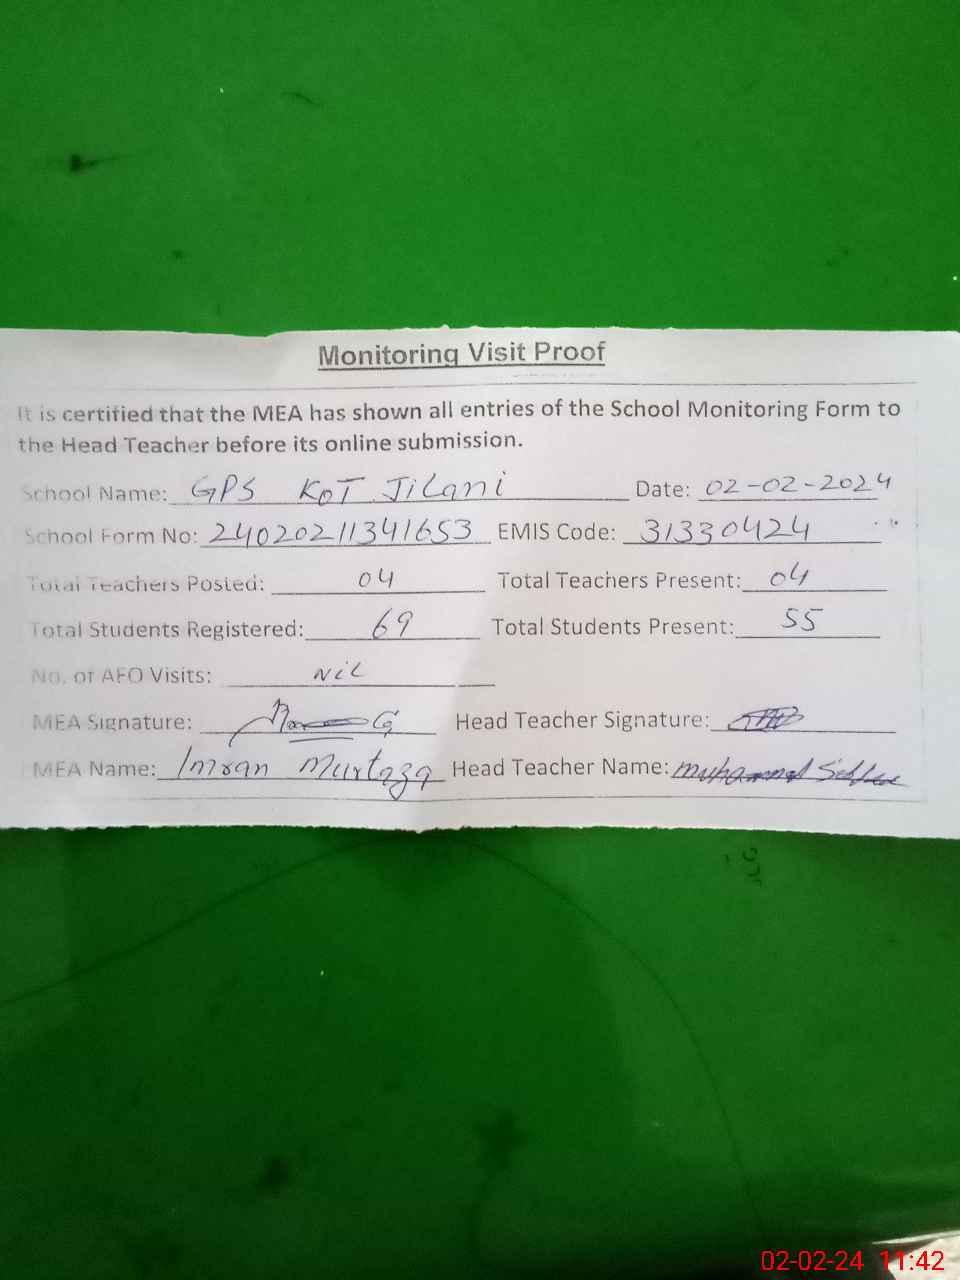 Monitoring Visit Proof
It is certified that the MEA has shown all entries of the School Monitoring Form to
the Head Teacher before its online submission.
School Name: GPS KOT JiLani Date: 02-02-2024
School Form No: 24020211341653 EMIS Code: 31330424
Total Teachers Posted: 04 Total Teachers Present: 04
Total Students Registered: 69 Total Students Present: 55
No. of AEO Visits: NiL
MEA Signature: Head Teacher Signature:
MEA Name: Imran Murtaza Head Teacher Name: Muhammad
02-02-24 11:42